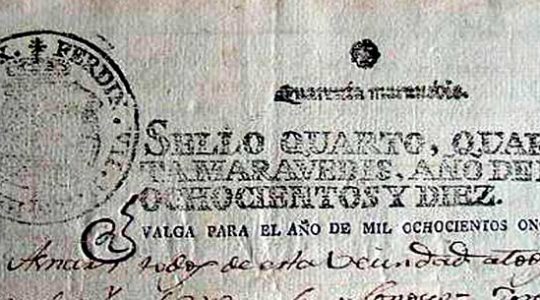 FERDIN. VII.
Quarenta maravedis.
SELLO QUARTO, QUAR
TAMARAVEDIS, AÑO DE
OCHOCIENTOS Y DIEZ.
VALGA PARA EL AÑO DE MIL OCHOCIENTOS ON
todos de esta Vecindad a